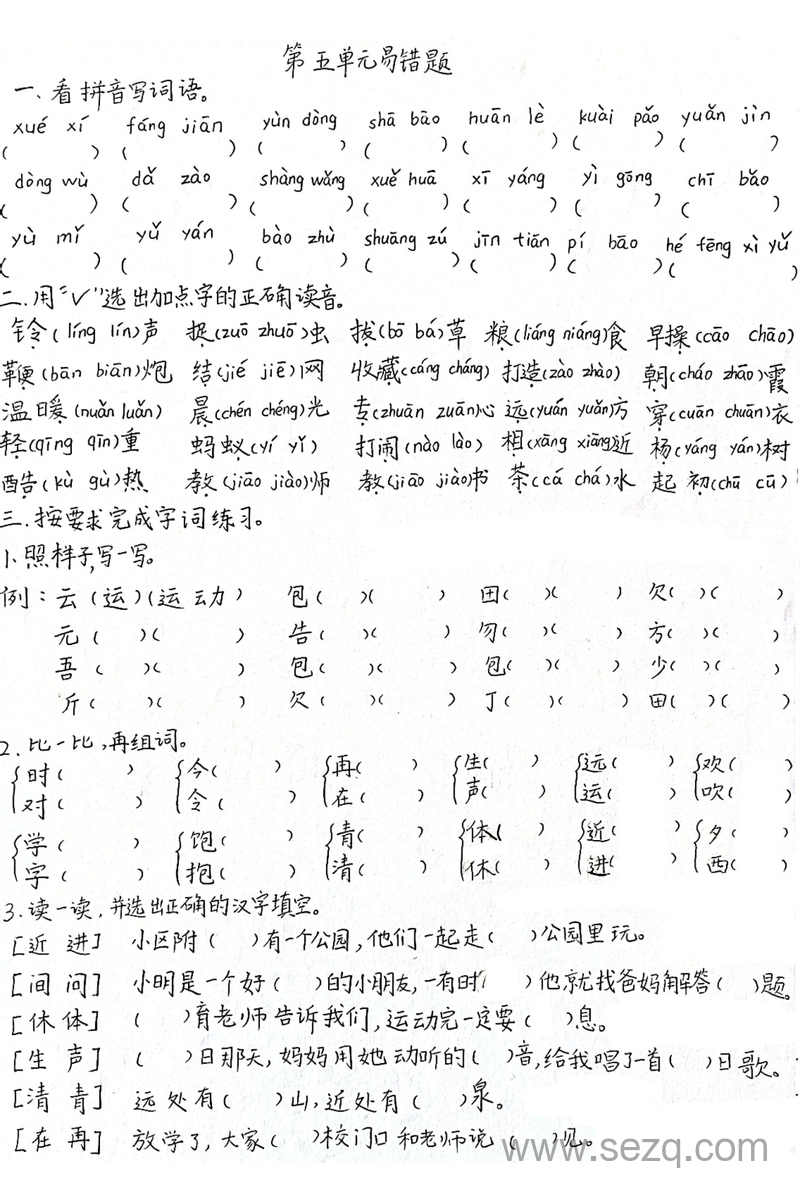 第五单元易错题
一、看拼音写词语。
xué xí fáng jiān yùn dòng shā bāo huān lè kuài pǎo yuǎn jìn
( ) ( ) ( ) ( ) ( ) ( ) ( )
dòng wù dǎ zào shàng wǎng xuě huā xī yáng yì gōng chī bǎo
( ) ( ) ( ) ( ) ( ) ( ) ( )
yù mǐ yǔ yán bào zhù shuāng zú jīn tiān pí bāo hé fēng xì yǔ
( ) ( ) ( ) ( ) ( ) ( ) ( )
二.用“√”选出加点字的正确读音。
铃(líng lín)声 捉(zuō zhuō)虫 拔(bō bá)草 粮(liáng niáng)食 早操(cāo chāo)
鞭(bān biān)炮 结(jié jiē)网 收藏(cáng cháng) 打造(zào zhào) 朝(cháo zhāo)霞
温暖(nuǎn luǎn) 晨(chén chéng)光 专(zhuān zuān)心 远(yuán yuǎn)方 穿(cuān chuān)衣
轻(qīng qīn)重 蚂蚁(yí yǐ) 打闹(nào lào) 相(xāng xiāng)近 杨(yáng yán)树
酷(kù gù)热 教(jiāo jiào)师 教(jiāo jiào)书 茶(cá chá)水 起初(chū cū)
三.按要求完成字词练习。
1.照样子,写一写。
例：云(运)(运动) 包( )( ) 田( )( ) 欠( )( )
元( )( ) 告( )( ) 勿( )( ) 方( )( )
吾( )( ) 包( )( ) 包( )( ) 少( )( )
斤( )( ) 欠( )( ) 丁( )( ) 田( )( )
2.比一比,再组词。
时( ) 今( ) 再( ) 生( ) 远( ) 欢( )
对( ) 令( ) 在( ) 声( ) 运( ) 吹( )
学( ) 饱( ) 青( ) 体( ) 近( ) 夕( )
字( ) 抱( ) 清( ) 休( ) 进( ) 西( )
3.读一读,并选出正确的汉字填空。
[近 进] 小区附( )有一个公园,他们一起走( )公园里玩。
[间 问] 小明是一个好( )的小朋友,一有时( )他就找爸妈解答( )题。
[休 体] ( )育老师告诉我们,运动完一定要( )息。
[生 声] ( )日那天,妈妈用她动听的( )音,给我唱了一首( )日歌。
[清 青] 远处有( )山,近处有( )泉。
[在 再] 放学了,大家( )校门口和老师说( )见。
www.sezq.com